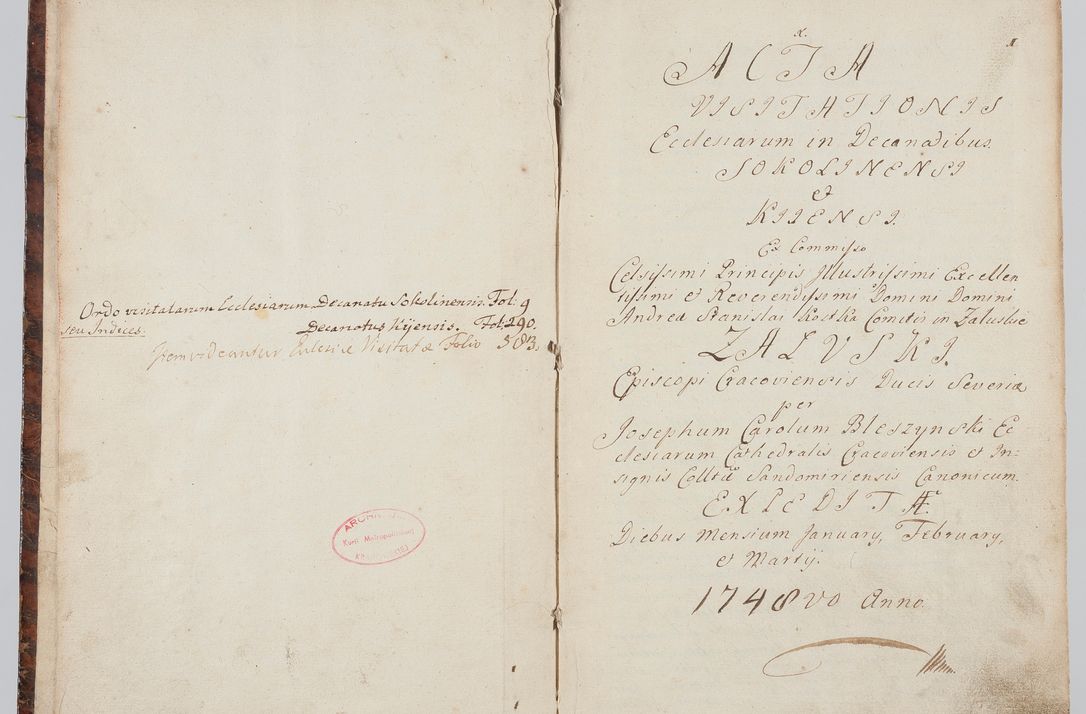 Ordo visitatarum Ecclesiarum Decanatu Sokolinensis. Fol: 9
seu Indices.
Decanatus Kijensis. Fol: 290.
Item videantur Eclesiæ Visitatæ Folio 583.
ARCHIWUM
Kurii Metropolitalnej
1
ACTA
VISITATIONIS
Ecclesiarum in Decanatibus
SOKOLINENSI
et
KIJENSI.
Ex Commisso
Celsissimi Principis Illustrissimi Excellen
tissimi et Reverendissimi Domini Domini
Andreæ Stanislai Kostka Comitis in Zaluskie
ZALUSKI.
Episcopi Cracoviensis Ducis Severiæ
per
Josephum Carolum Bleszynski Ec
clesiarum Cathedralis Cracoviensis et In=
signis Colltæ Sandomiriensis Canonicum.
EXPEDITÆ.
Diebus Mensium January, February,
et Martij.
1748vo Anno.